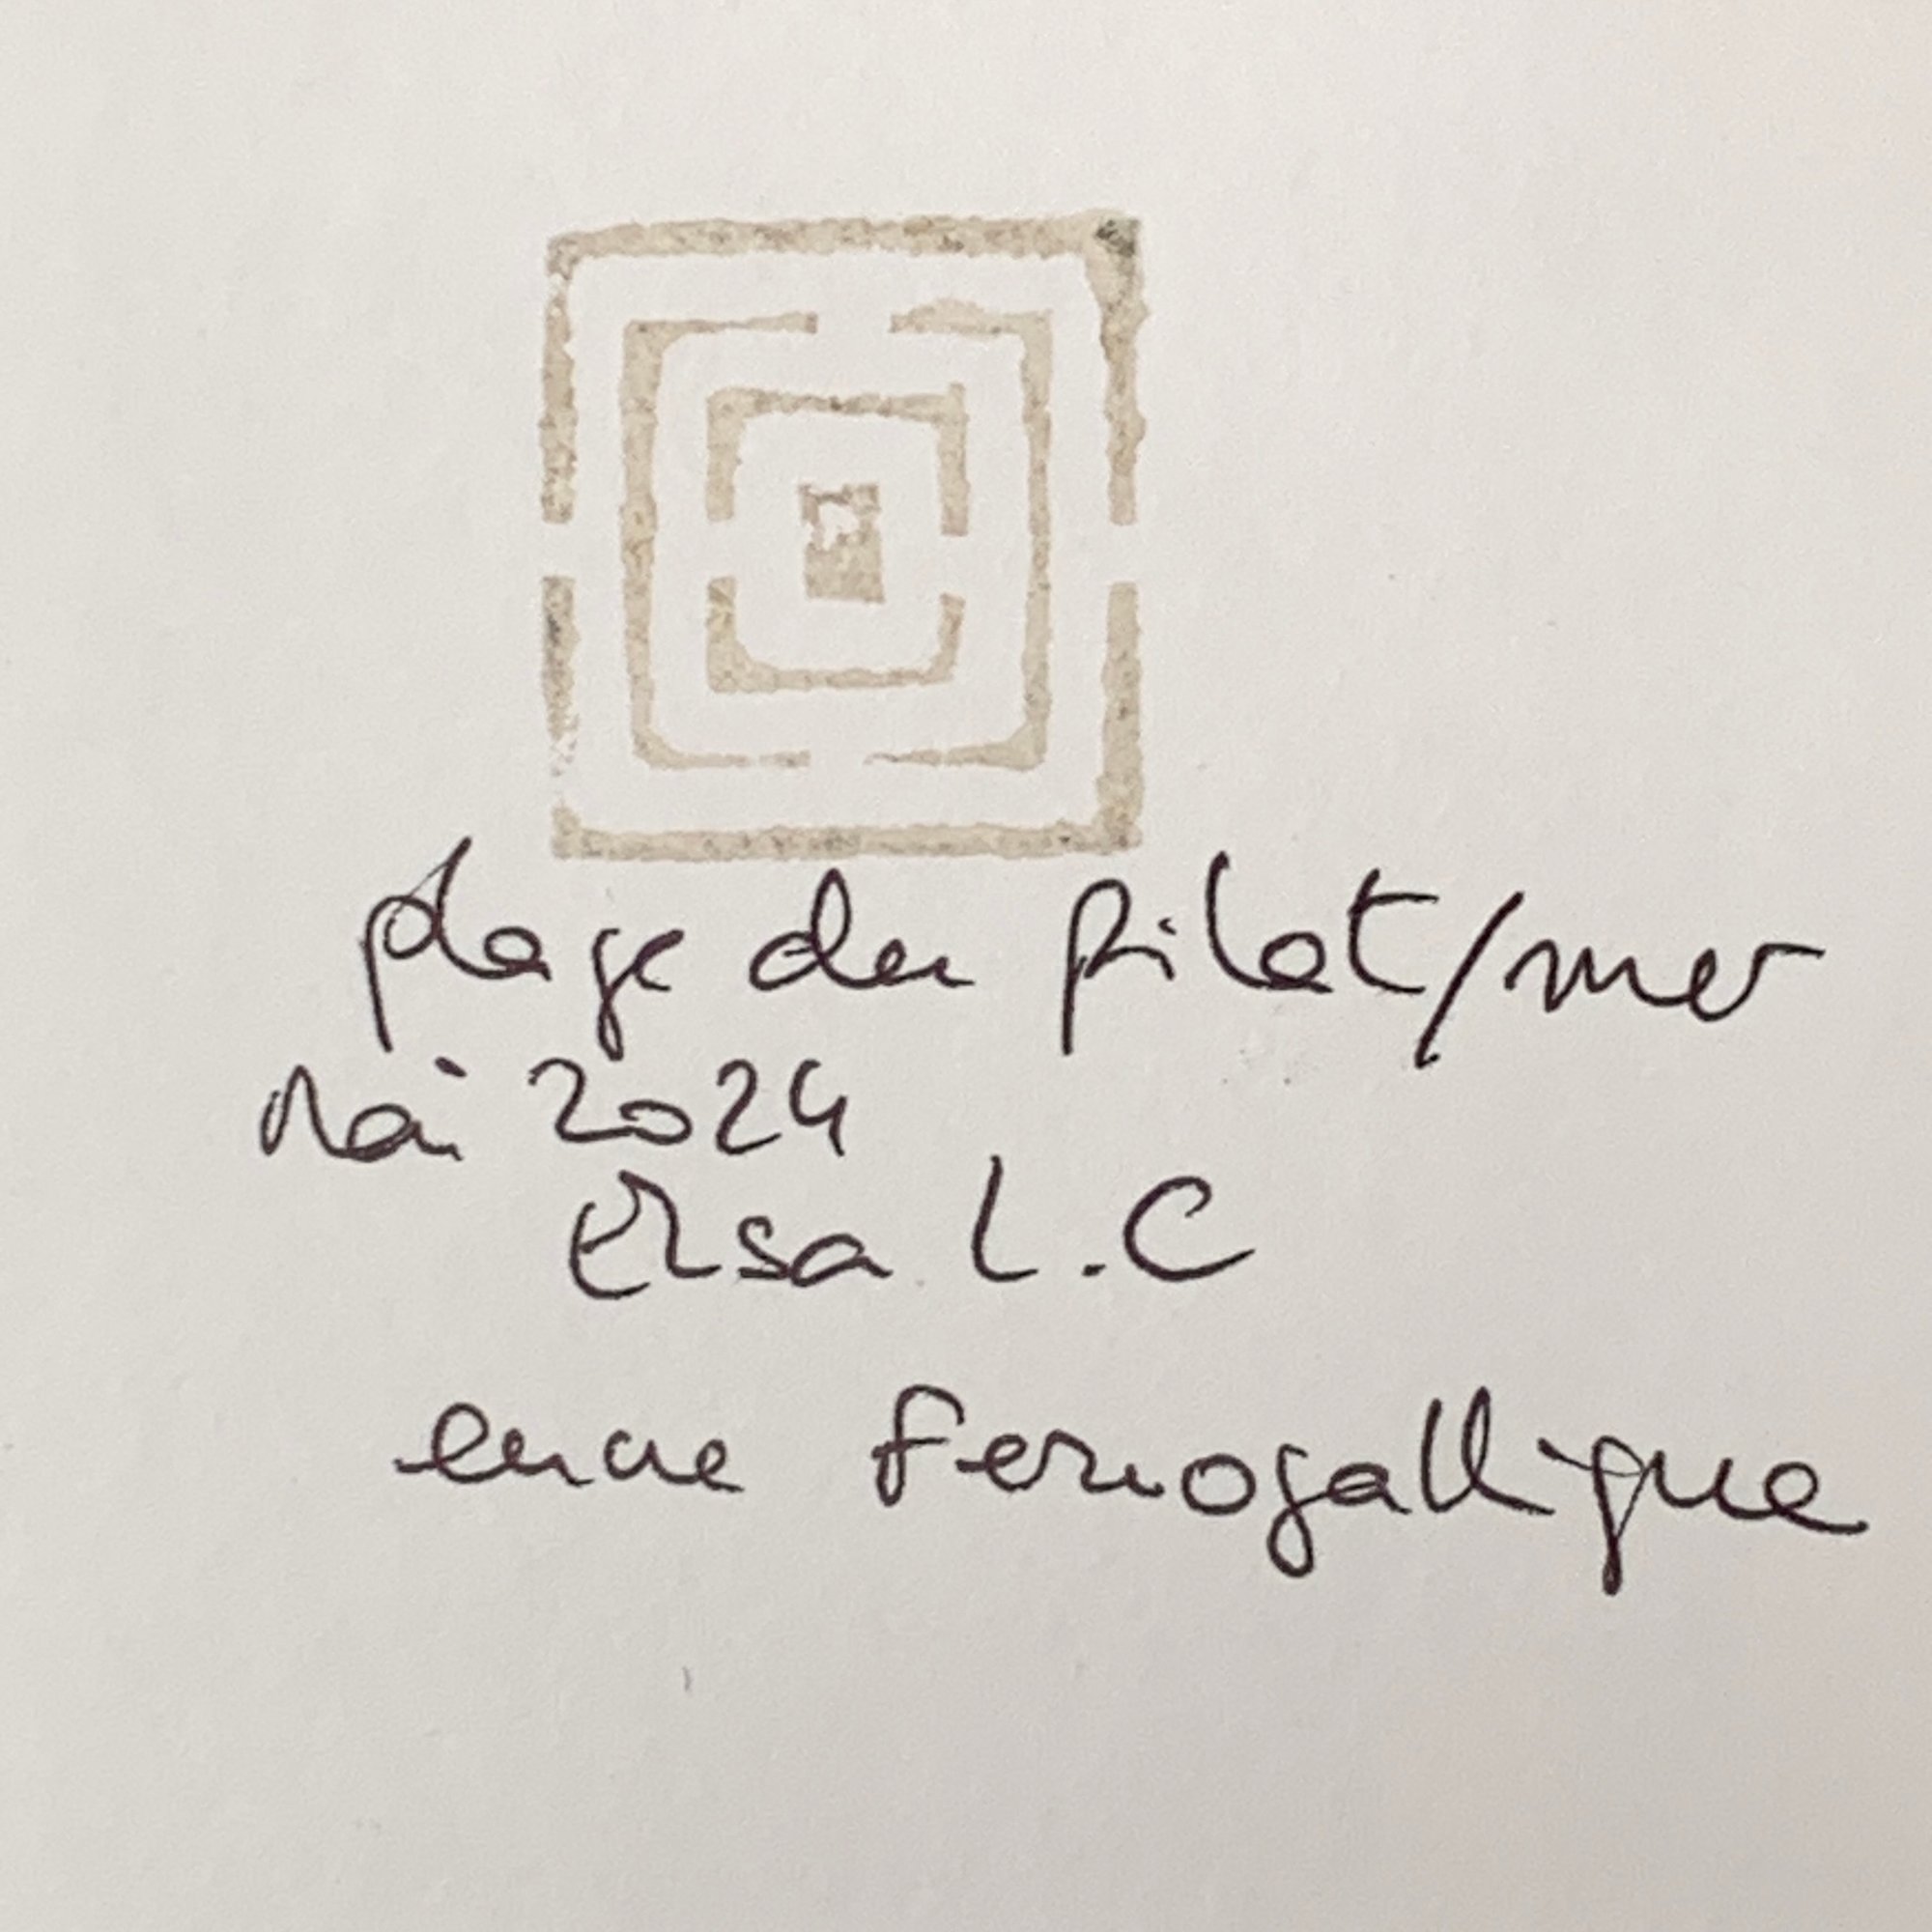 plage du pilat/mer
Mai 2024
Elsa L.C
encre Ferrogallique